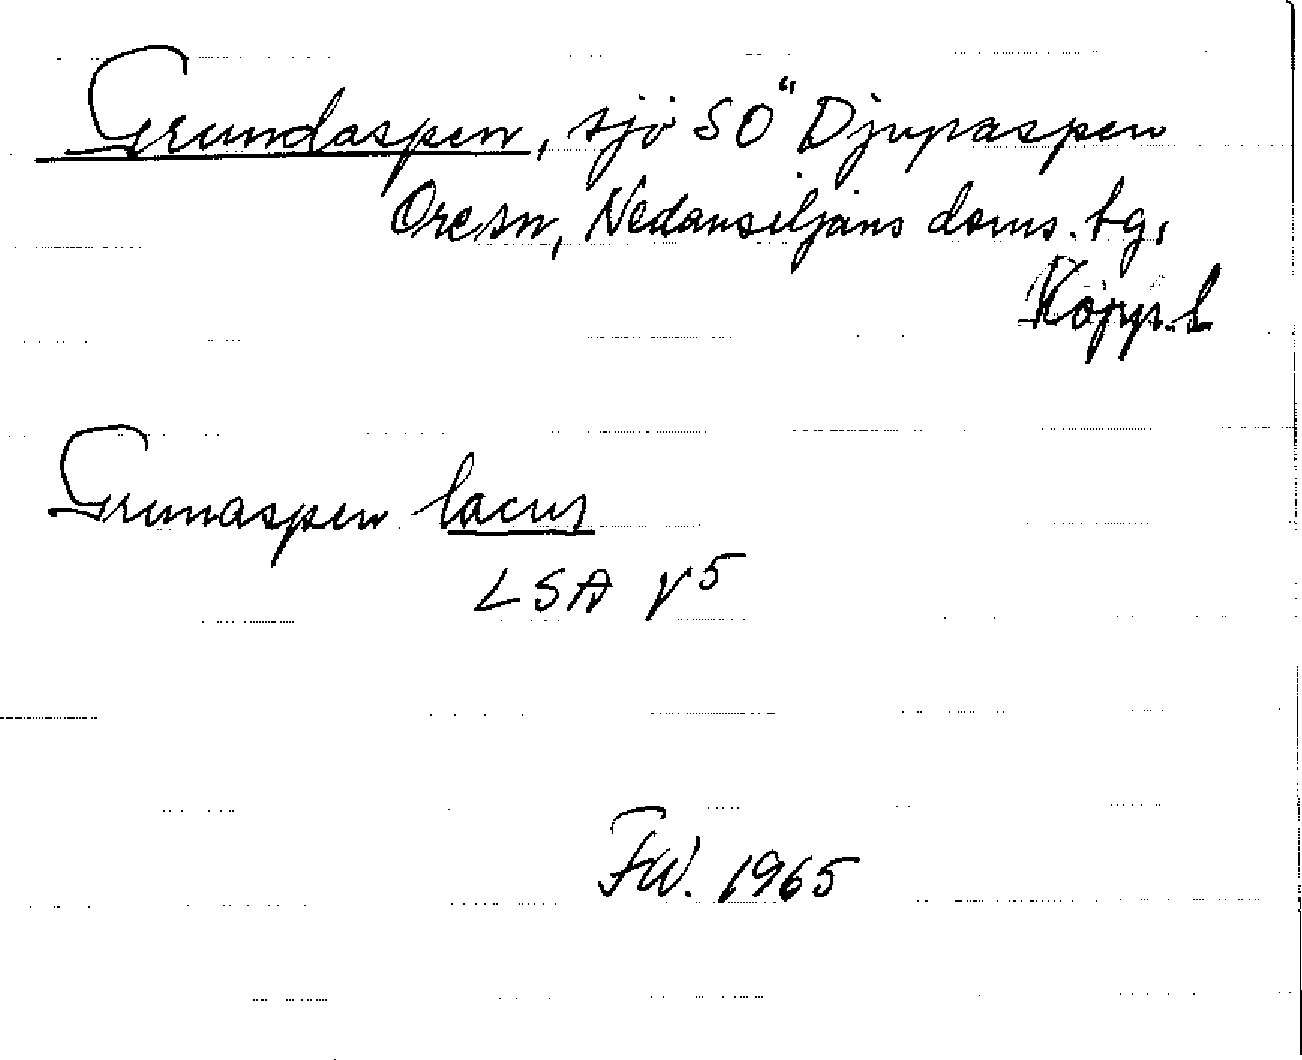 Grundaspen, sjö SÖ Djupaspen
Ore sn, Nedansiljans doms. tg,
Kopp. l
Grunaspen lacus
LSA γ5
FW. 1965